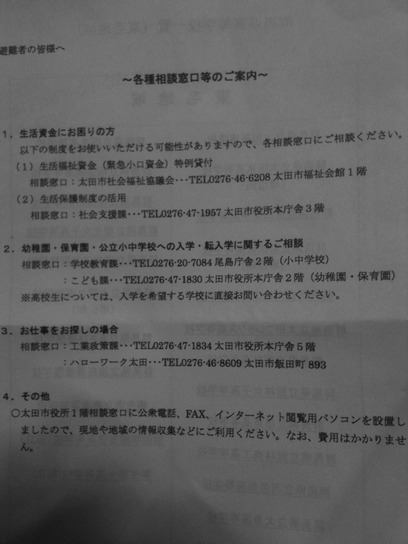 避難者の皆様へ
～各種相談窓口等のご案内～
1．生活資金にお困りの方
以下の制度をお使いいただける可能性がありますので、各相談窓口にご相談ください。
（1）生活福祉資金（緊急小口資金）特例貸付
相談窓口：太田市社会福祉協議会･･･TEL0276-46-6208 太田市福祉会館1階
（2）生活保護制度の活用
相談窓口：社会支援課･･･TEL0276-47-1957 太田市役所本庁舎3階
2．幼稚園・保育園・公立小中学校への入学・転入学に関するご相談
相談窓口：学校教育課･･･TEL0276-20-7084 尾島庁舎2階（小中学校）
：こども課･･･TEL0276-47-1830 太田市役所本庁舎2階（幼稚園・保育園）
※高校生については、入学を希望する学校に直接お問い合わせください。
3．お仕事をお探しの場合
相談窓口：工業政策課･･･TEL0276-47-1834 太田市役所本庁舎5階
：ハローワーク太田･･･TEL0276-46-8609 太田市飯田町893
4．その他
○太田市役所1階相談窓口に公衆電話、FAX、インターネット閲覧用パソコンを設置し
ましたので、現地や地域の情報収集などにご利用ください。なお、費用はかかりませ
ん。